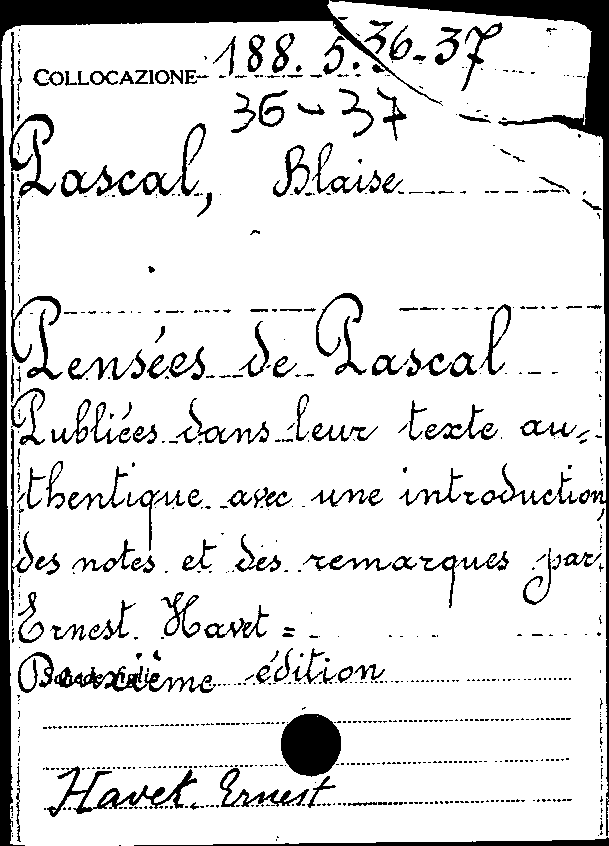 COLLOCAZIONE 188. 5. 36-37
36-37
Pascal, Blaise
Pensées de Pascal
Publiées dans leur texte au=
thentique avec une introduction,
des notes et des remarques par
Ernest Havet =
Deuxième édition
Havet Ernest